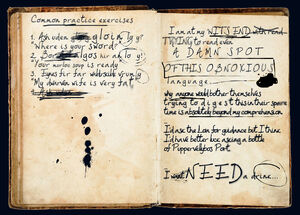 Common practice exercises
1. Ask uden gloin To y!
Where is your sword?
2. Bor algos hir an To y!
Your marlos soup is ready
3. Eynes fir far websule vrung
My dwarven wife is very fat
I am at my WITS END with
TRYING to read even
A DAMN SPOT
OF THIS OBNOXIOUS
language
why anyone would bother themselves
trying to digest this in their spare
time is absolutely beyond my comprehension
I'll ask the Lon for guidance but I think
I'd have better luck asking a bottle
of Peppervalleybas Port
I want NEED a drink...